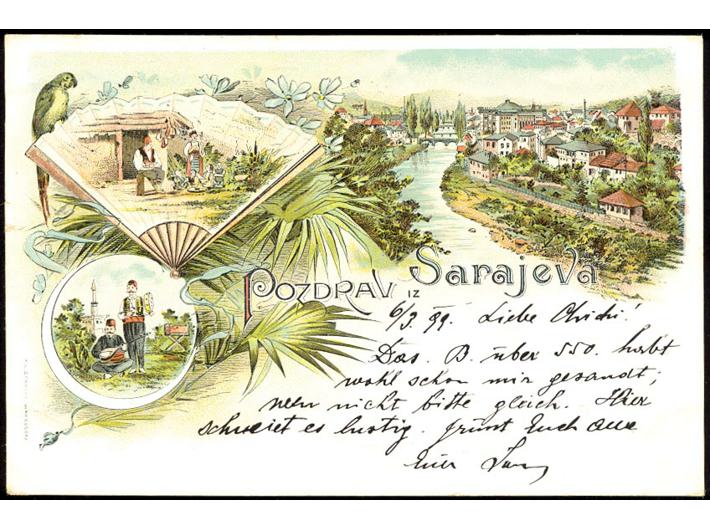 POZDRAV IZ Sarajeva
6/3 99. Liebe
Das. B. über 550. habt
wohl schon mir gesandt;
wenn nicht bitte gleich. Hier
schneiet es lustig. grüsst Euch
Euer